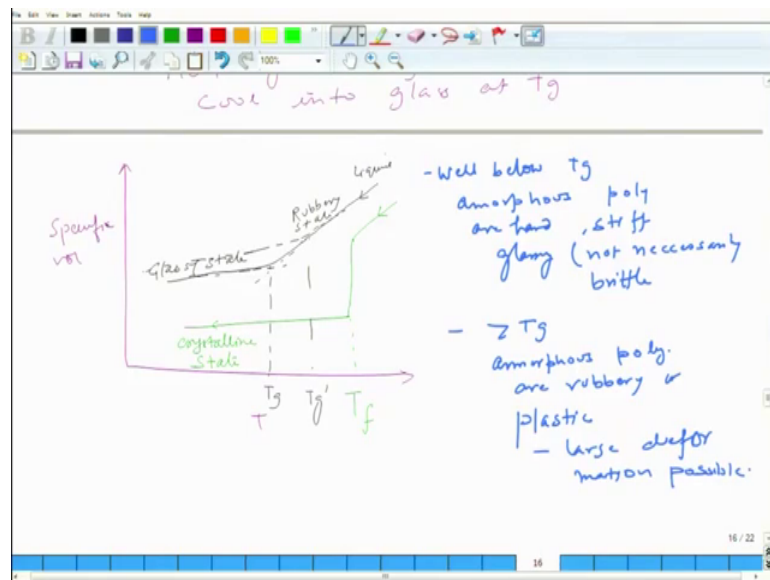 File Edit View Insert Actions Tools Help
B I
100%
cool into glass at Tg
Liquid
Rubbery
state
Specific
vol
Glassy state
Crystalline
State
Tg
Tg'
Tf
T
- Well below Tg
amorphous poly
are hard, stiff
glassy (not neccessarily
brittle
- > Tg
amorphous poly.
are rubbery or
plastic
- large defor
mation possible.
16 / 22
16